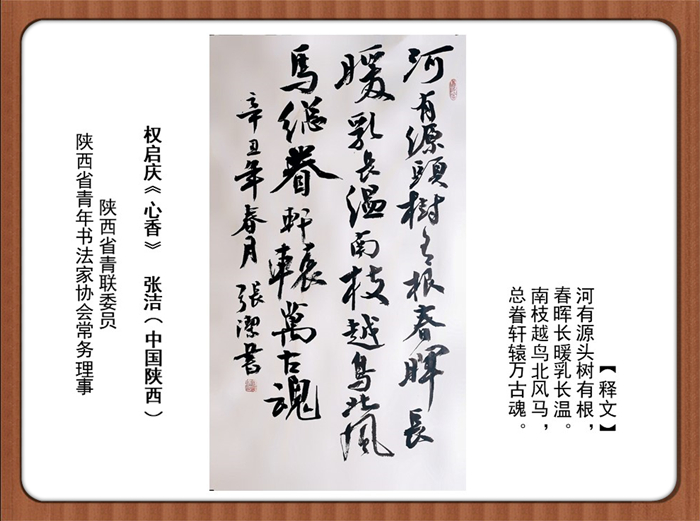 【释文】
河有源头树有根，
春晖长暖乳长温。
南枝越鸟北风马，
总眷轩辕万古魂。
河有源頭樹有根春暉長
暖乳長温南枝越鳥北風
馬總眷軒轅萬古魂
辛丑年春月張潔書
权启庆《心香》 张洁（中国陕西）
陕西省青联委员
陕西省青年书法家协会常务理事